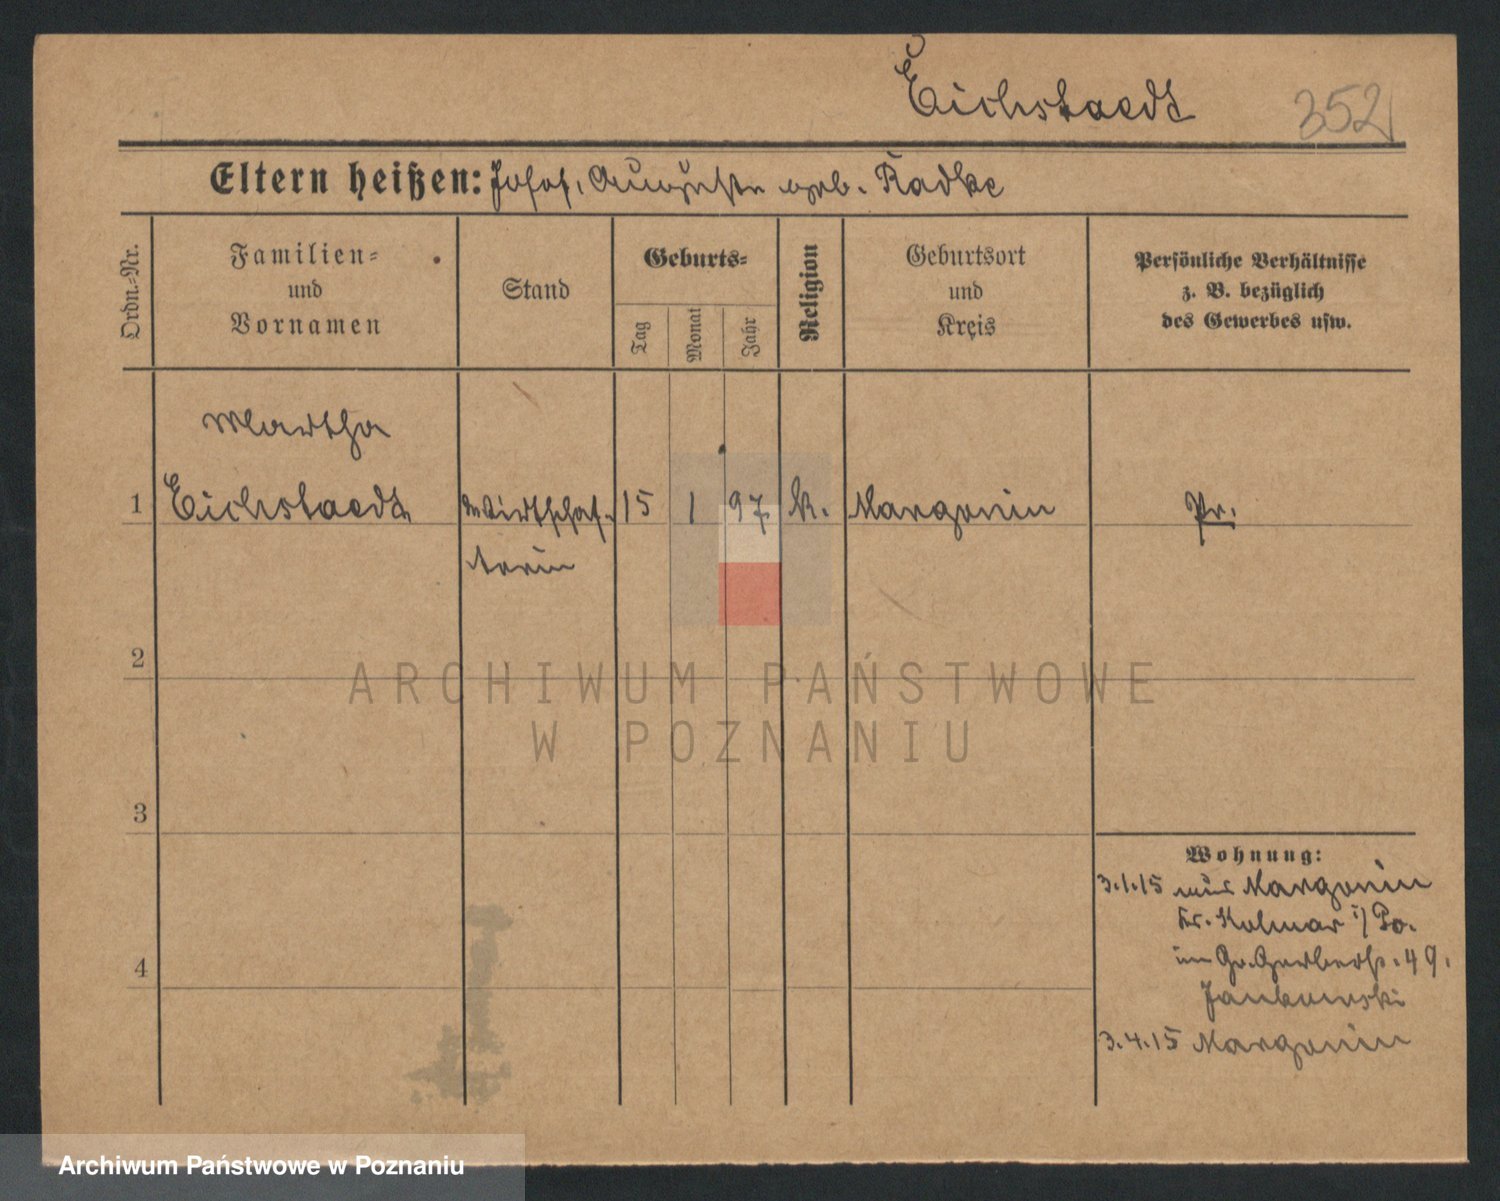 Eichstaedt 352
Eltern heißen: Josef, Auguste geb. Radke
Ordn.-Nr.
Familien-
und
Vornamen
Stand
Geburts-
Tag
Monat
Jahr
Religion
Geburtsort
und
Kreis
Persönliche Verhältnisse
z. B. bezüglich
des Gewerbes usw.
Martha
1 Eichstaedt Wirtschaf- 15 1 97 k. Margonin Pr.
terin
2
ARCHIWUM PAŃSTWOWE
W POZNANIU
3
Wohnung:
3.1.15 aus Margonin
Kr. Kolmar i/Po.
in Gr. Gerberstr. 49.
Jankowski
4
3.4.15 Margonin
Archiwum Państwowe w Poznaniu